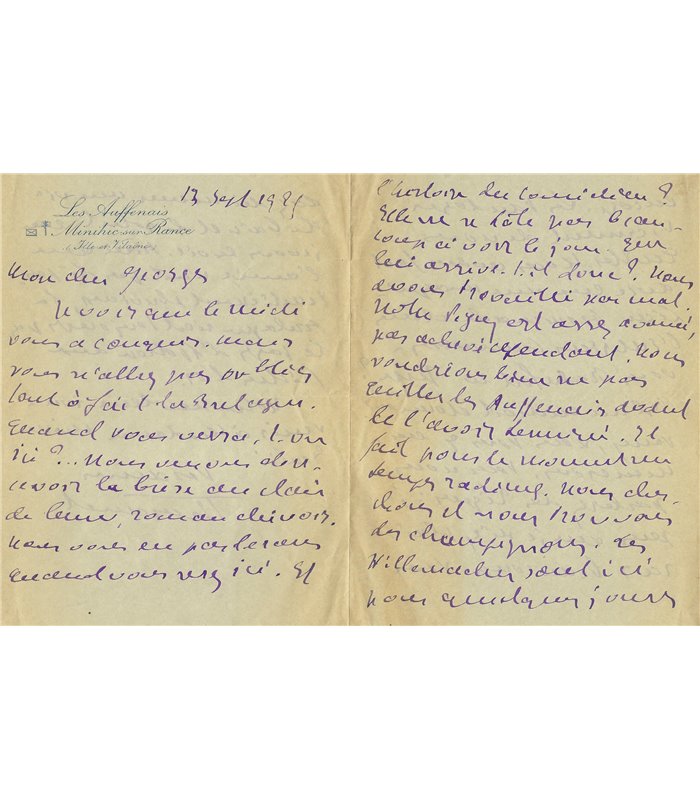 13 Sept 192
Les Auffenais
Minihic-sur-Rance
(Ille et Vilaine)
Mon cher George
Je vois que le midi
vous a conquis. mais
vous n'allez pas oublier
tout à fait la Bretagne.
Quand vous verra-t-on
ici ?... Nous venons de re-
cevoir la bière au clair
de lune, roman chinois.
Nous vous en parlerons
quand vous serez ici. Et
l'histoire du comédien ?
Elle ne se hâte pas beau-
coup à voir le jour. Que
lui arrive-t-il donc ? Nous
avons travaillé pas mal.
Notre Vigny est assez avancé,
pas achevé cependant. Nous
voudrions bien ne pas
quitter les Auffenais avant
de l'avoir terminé. Il
fait pour le moment un
temps radieux. Nous cher-
chons et nous trouvons
des champignons. Les
sont ici
pour quelques jours